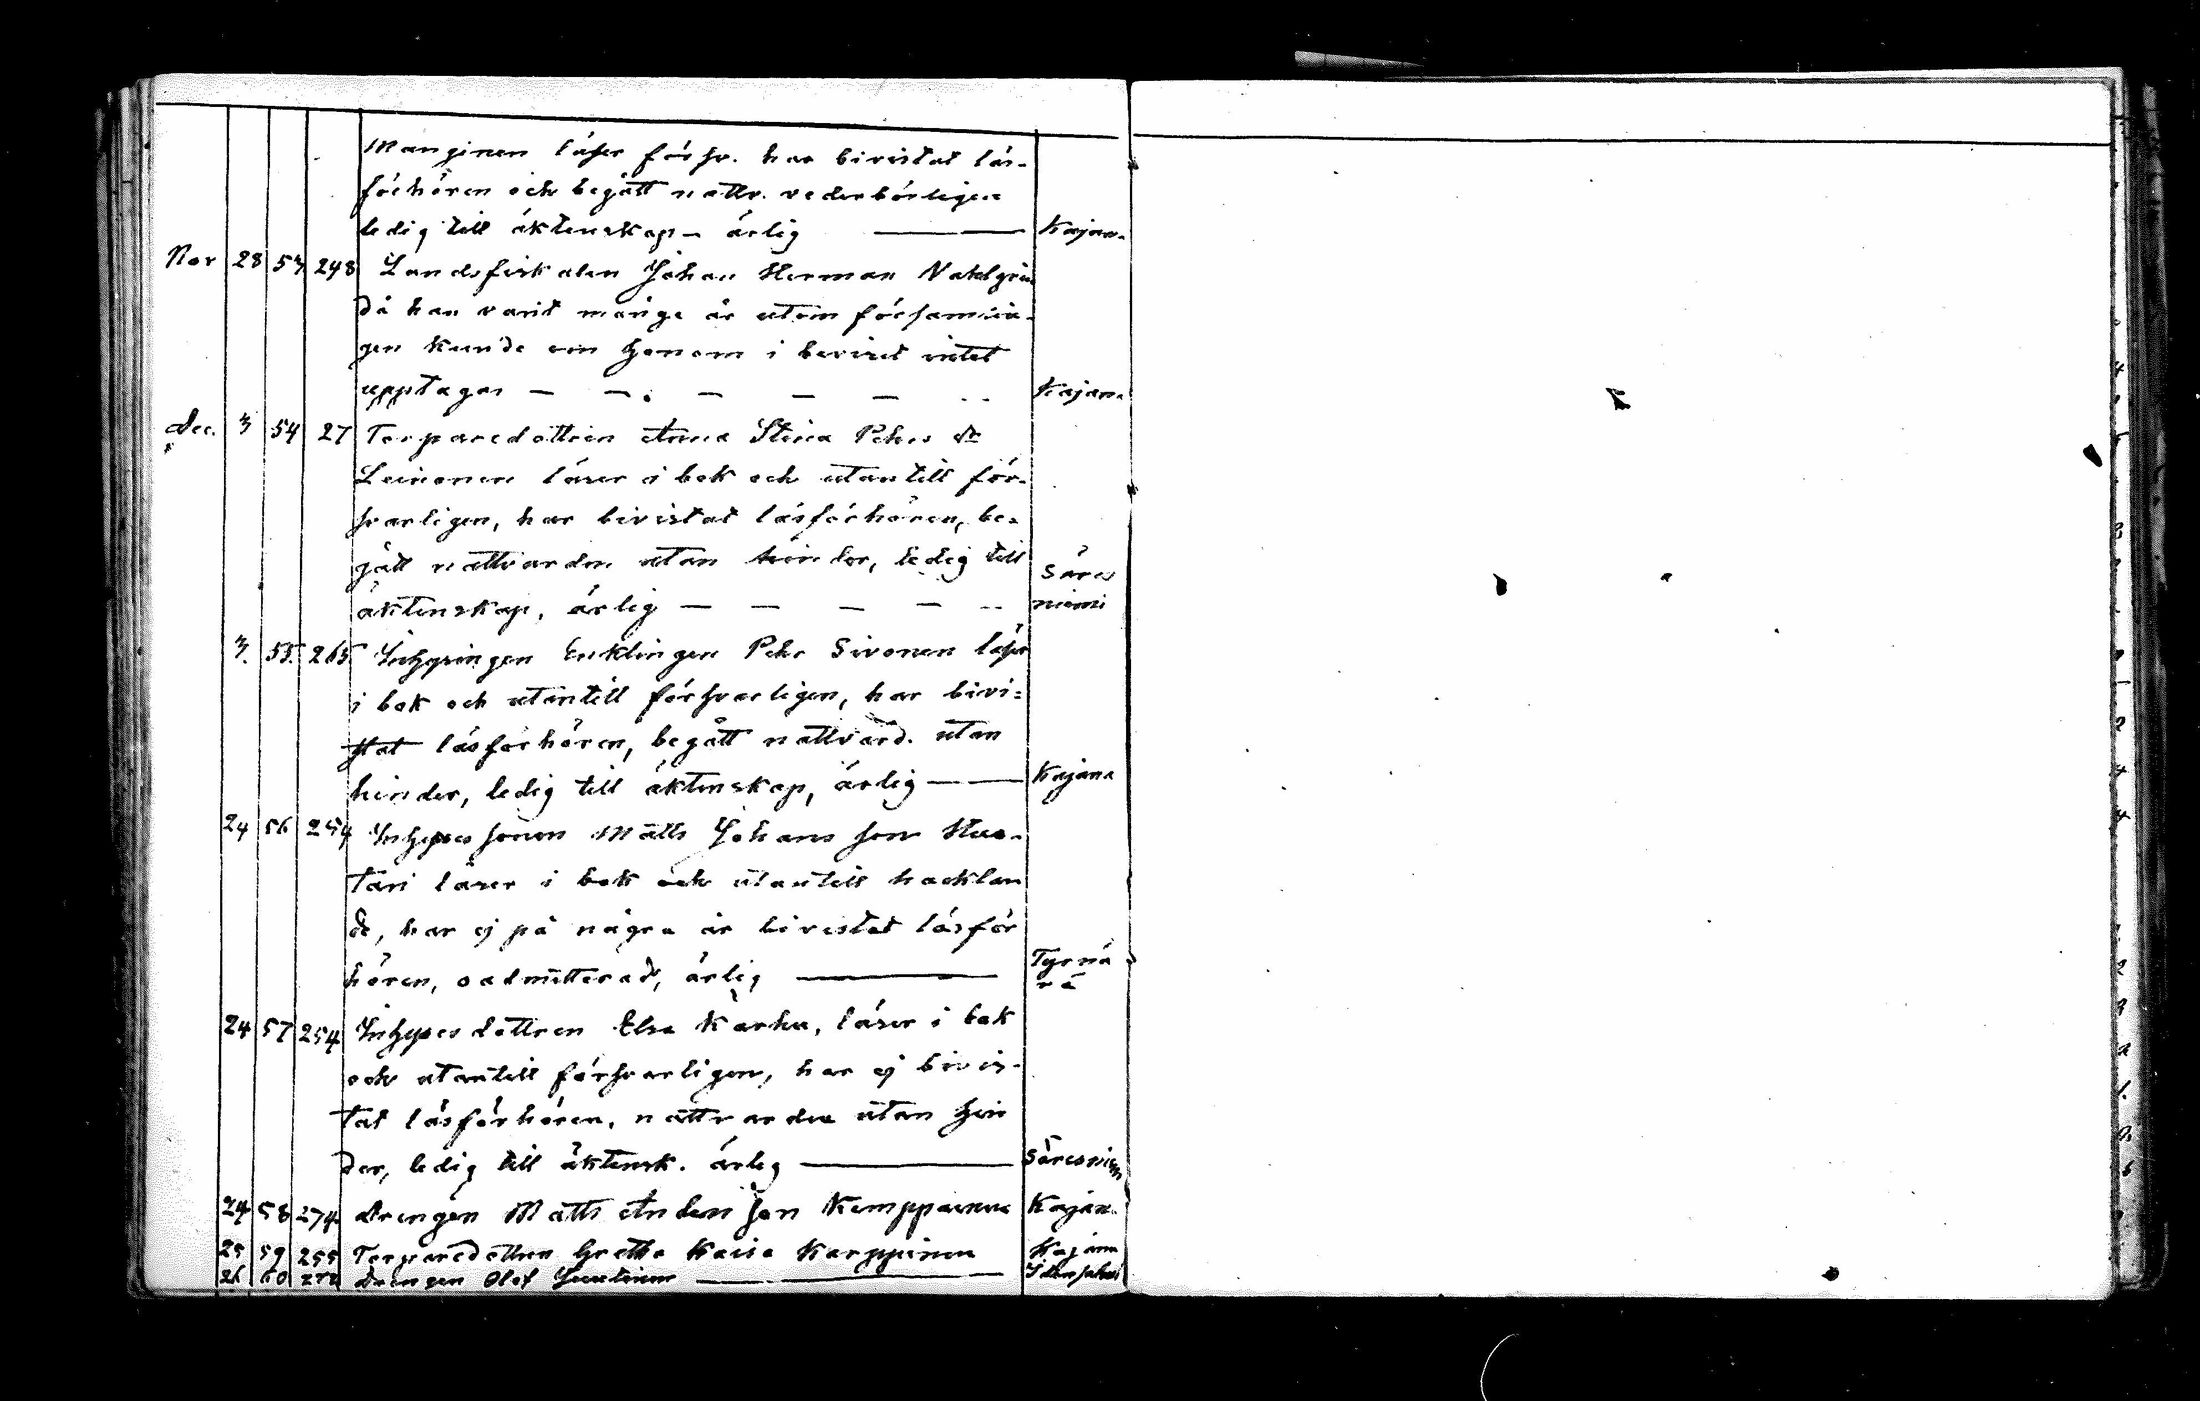 Manginen läser försv. har bivistat läs-
förhören och begått nattv. vederbörligen
ledig till äktenskap - ärlig — Kajan.
Nov 28 53 248 Landsfiskalen Johan Herman Vahlgrén
då han varit många år utom församlin-
gen kunde om honom i beviset intet
upptagas — — — — — Kajan.
Dec. 3 54 27 Torparedottren Anna Stina Pehrs dr
Leinonen läser i bok och utantill för-
svarligen, har bivistat läsförhören, be-
gått nattvarden utan hinder, ledig till
äktenskap, ärlig — — — — Säres
niemi
3. 55. 265 Inhysingen Enklingen Pehr Sivonen läser
i bok och utantill försvarligen, har bivi=
stat läsförhören, begått nattvard. utan
hinder, ledig till äktenskap, ärlig — Kajana
24 56 254 Inhyses sonen Matts Johans son Hua-
tari läser i bok och utantill hacklan
de, har ej på några år bivistat läsför
hören, oadmitterad, ärlig — Tyrnä
vä
24 57 254 Inhyses dottren Elsa Karhu, läser i bok
och utantill försvarligen, har ej bivis-
tat läsförhören, nattvarden utan hin
der, ledig till äktensk. ärlig — Säresniem
24 58 274 Drengen Matts Anders son Kemppainen Kajan.
25 59 255 Torparedottren Gretha Kaisa Karppinen Kajana
26 60 Drengen Olof —